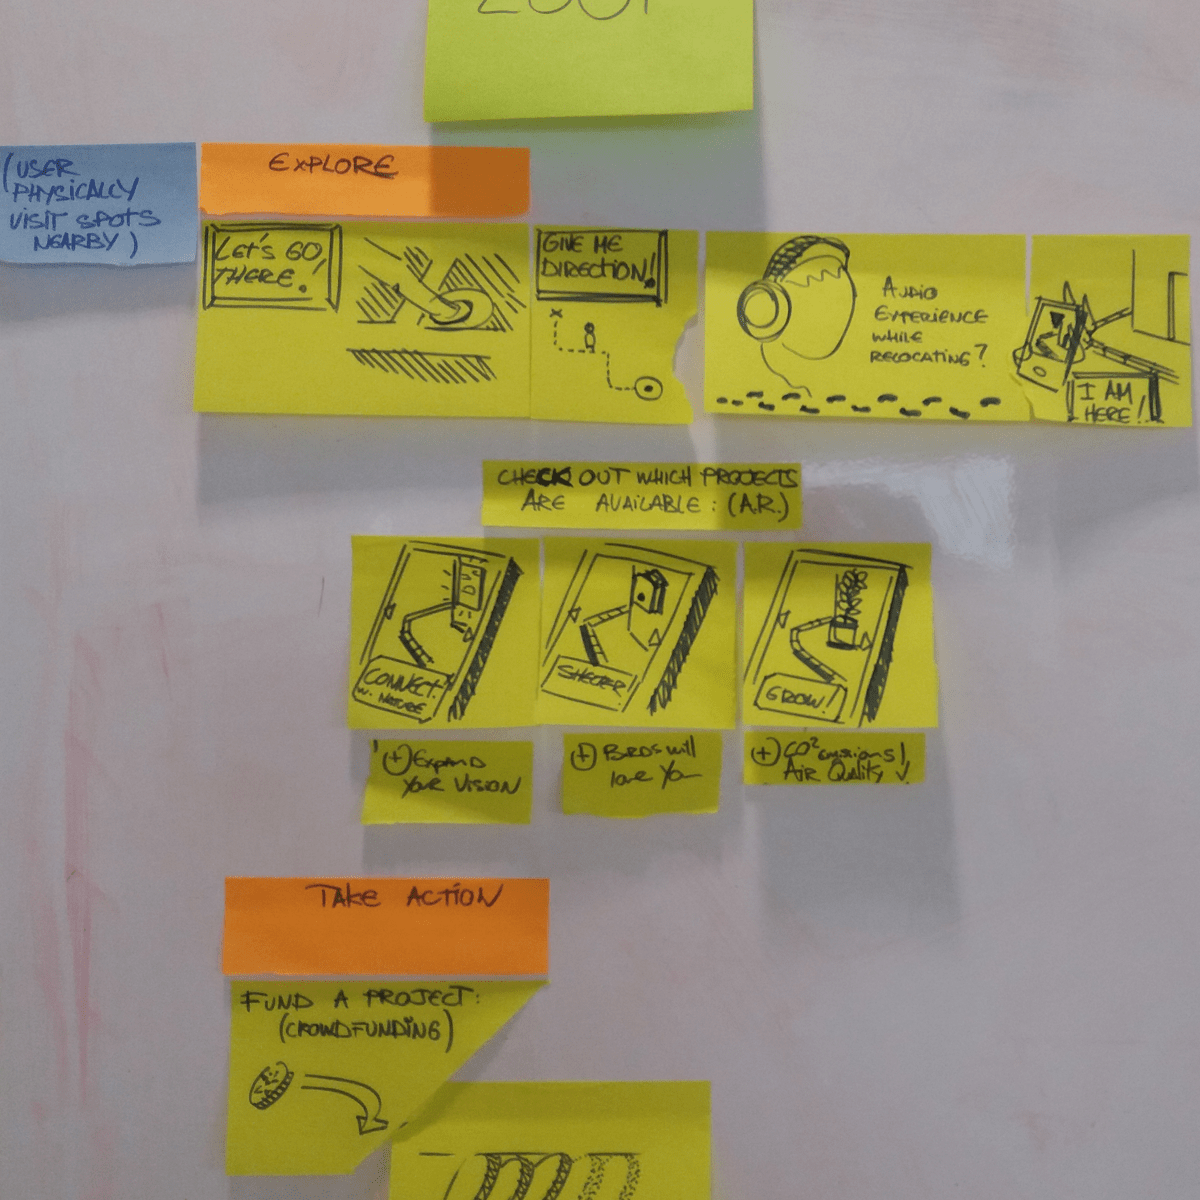 (USER
PHYSICALLY
VISIT SPOTS
NEARBY)
EXPLORE
LET'S GO
THERE.
GIVE ME
DIRECTION!
AUDIO
EXPERIENCE
WHILE
RELOCATING?
I AM
HERE!
CHECK OUT WHICH PROJECTS
ARE AVAILABLE: (A.R.)
CONNECT
W. NATURE
SHELTER!
GROW!
(+) EXPAND
YOUR VISION
(+) BIRDS will
love You
(+) CO² emissions!
AIR QUALITY
TAKE ACTION
FUND A PROJECT:
(CROWDFUNDING)